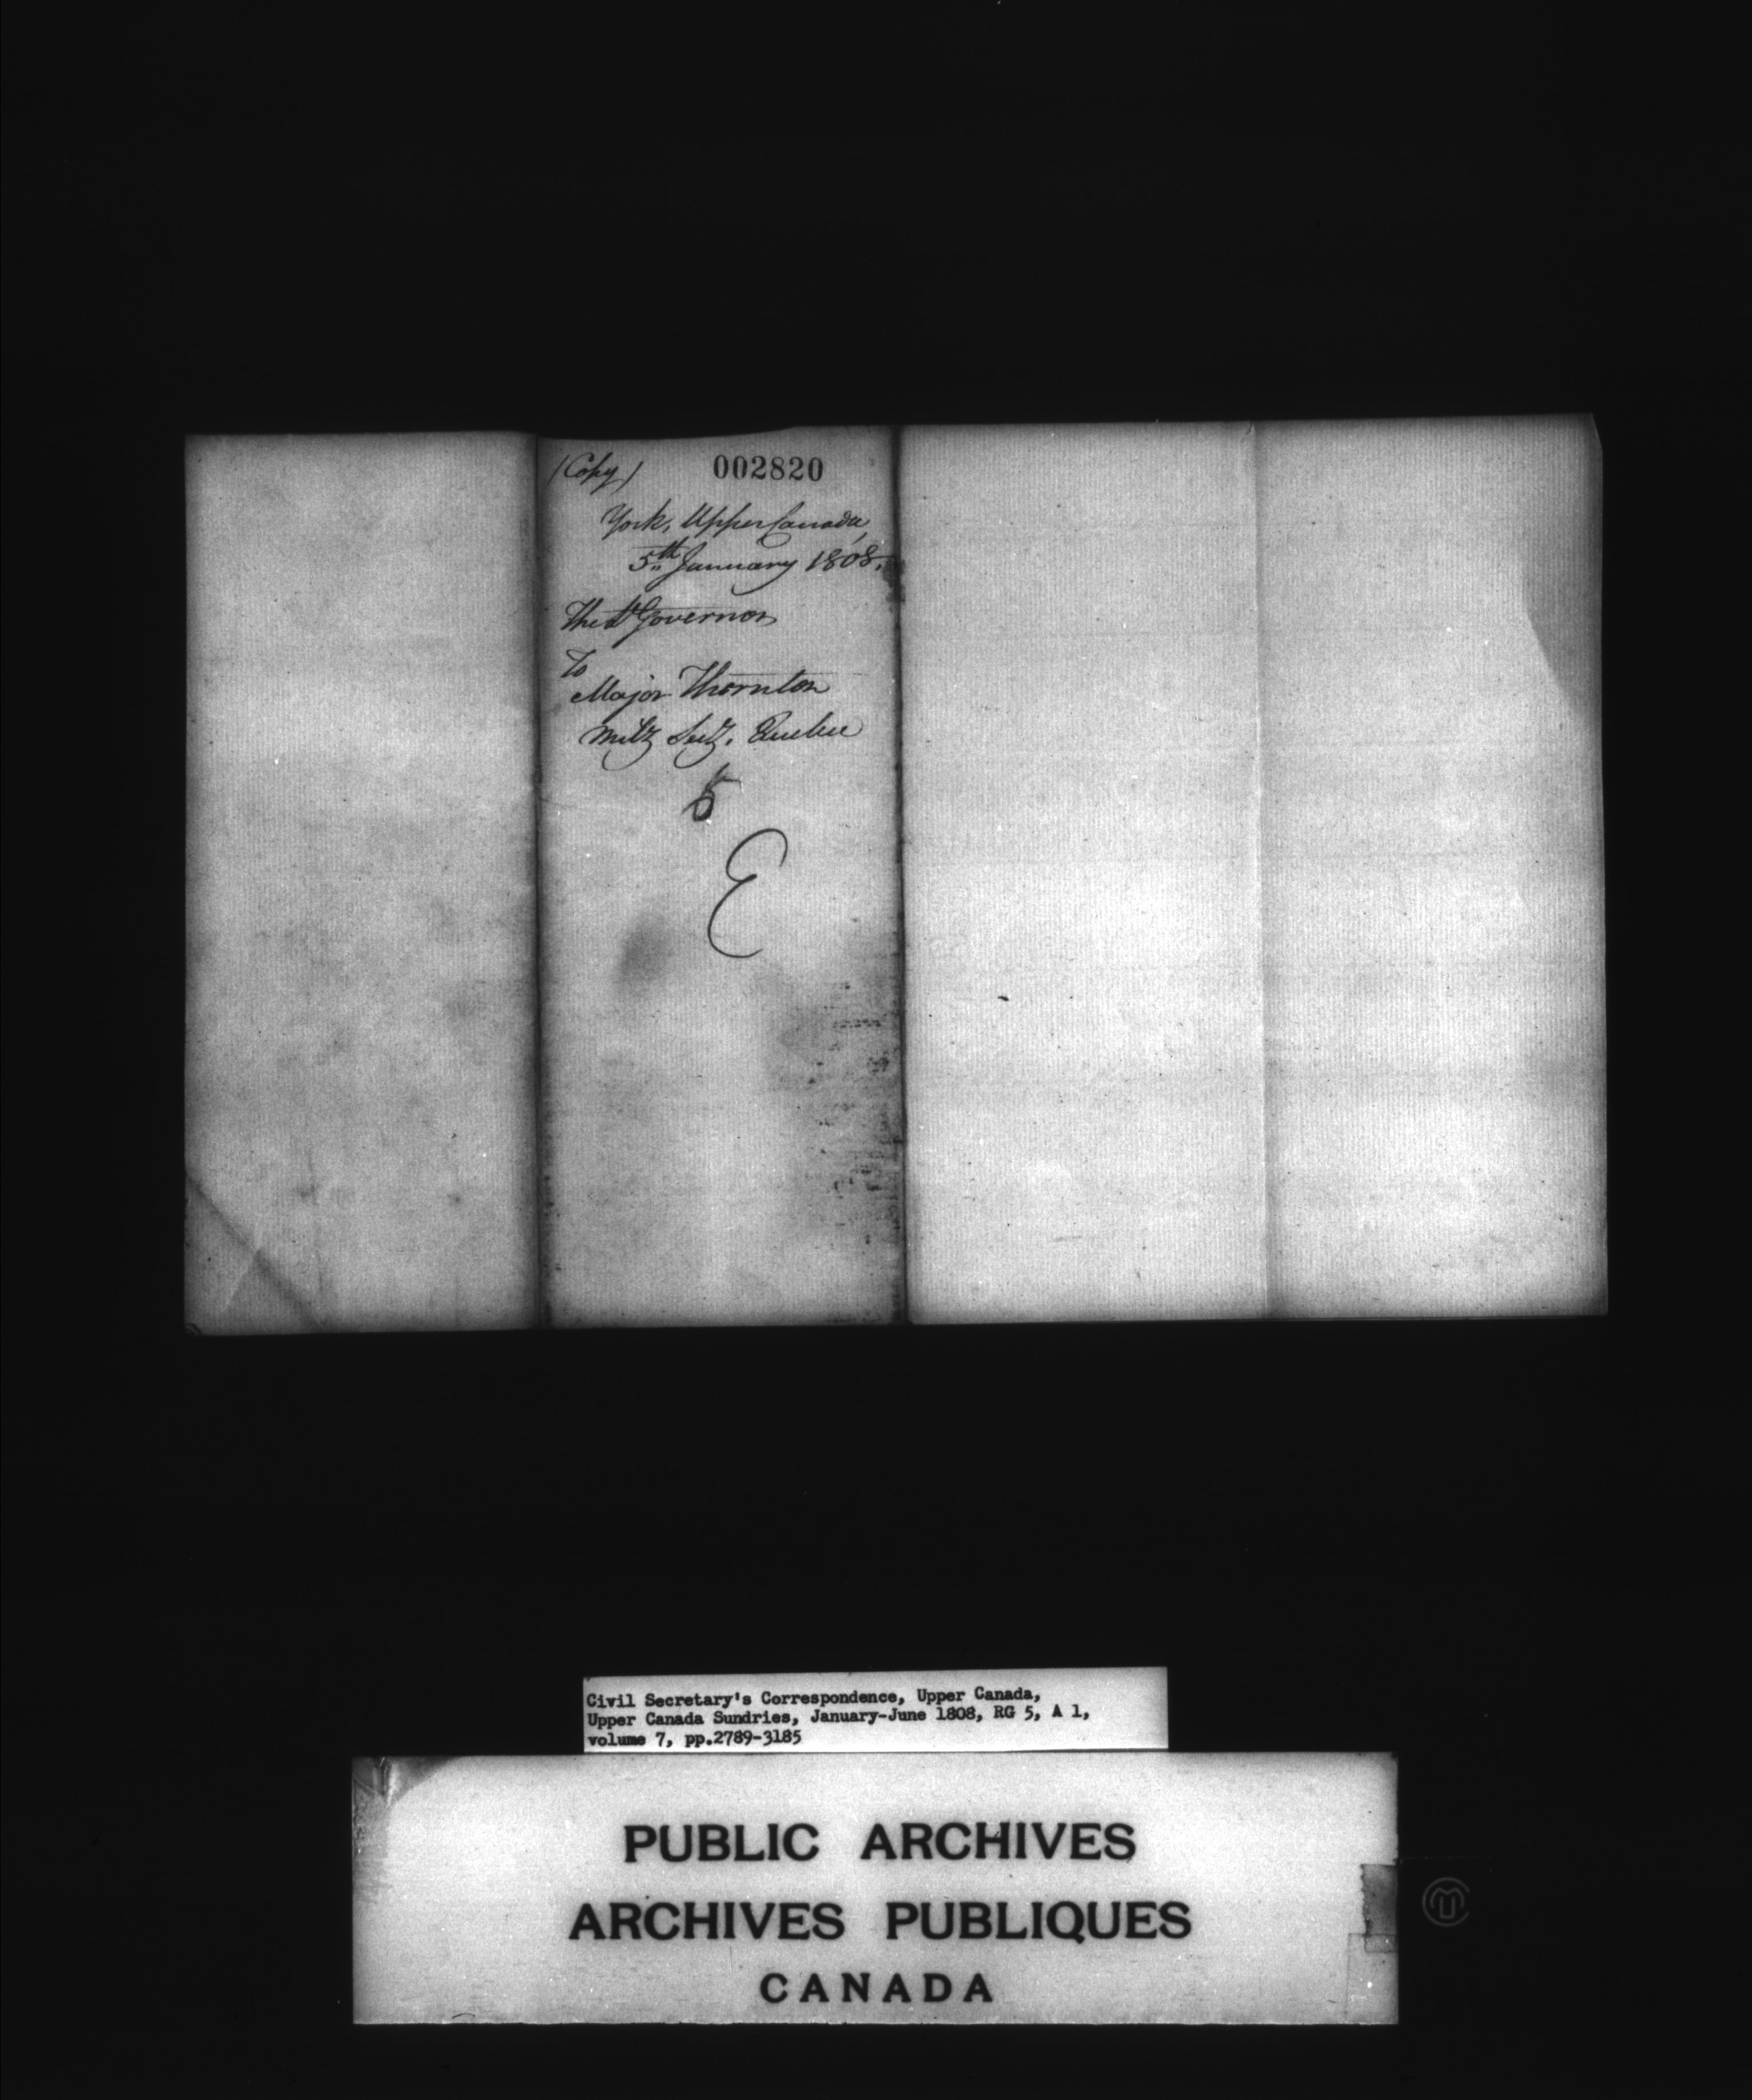 (Copy) 002820
York, Upper Canada,
5th January 1808.
The Lt Governor
To
Major Thornton
Mily Secy. Quebec
5
E
Civil Secretary's Correspondence, Upper Canada,
Upper Canada Sundries, January-June 1808, RG 5, A 1,
volume 7, pp.2789-3185
PUBLIC ARCHIVES
ARCHIVES PUBLIQUES
CANADA